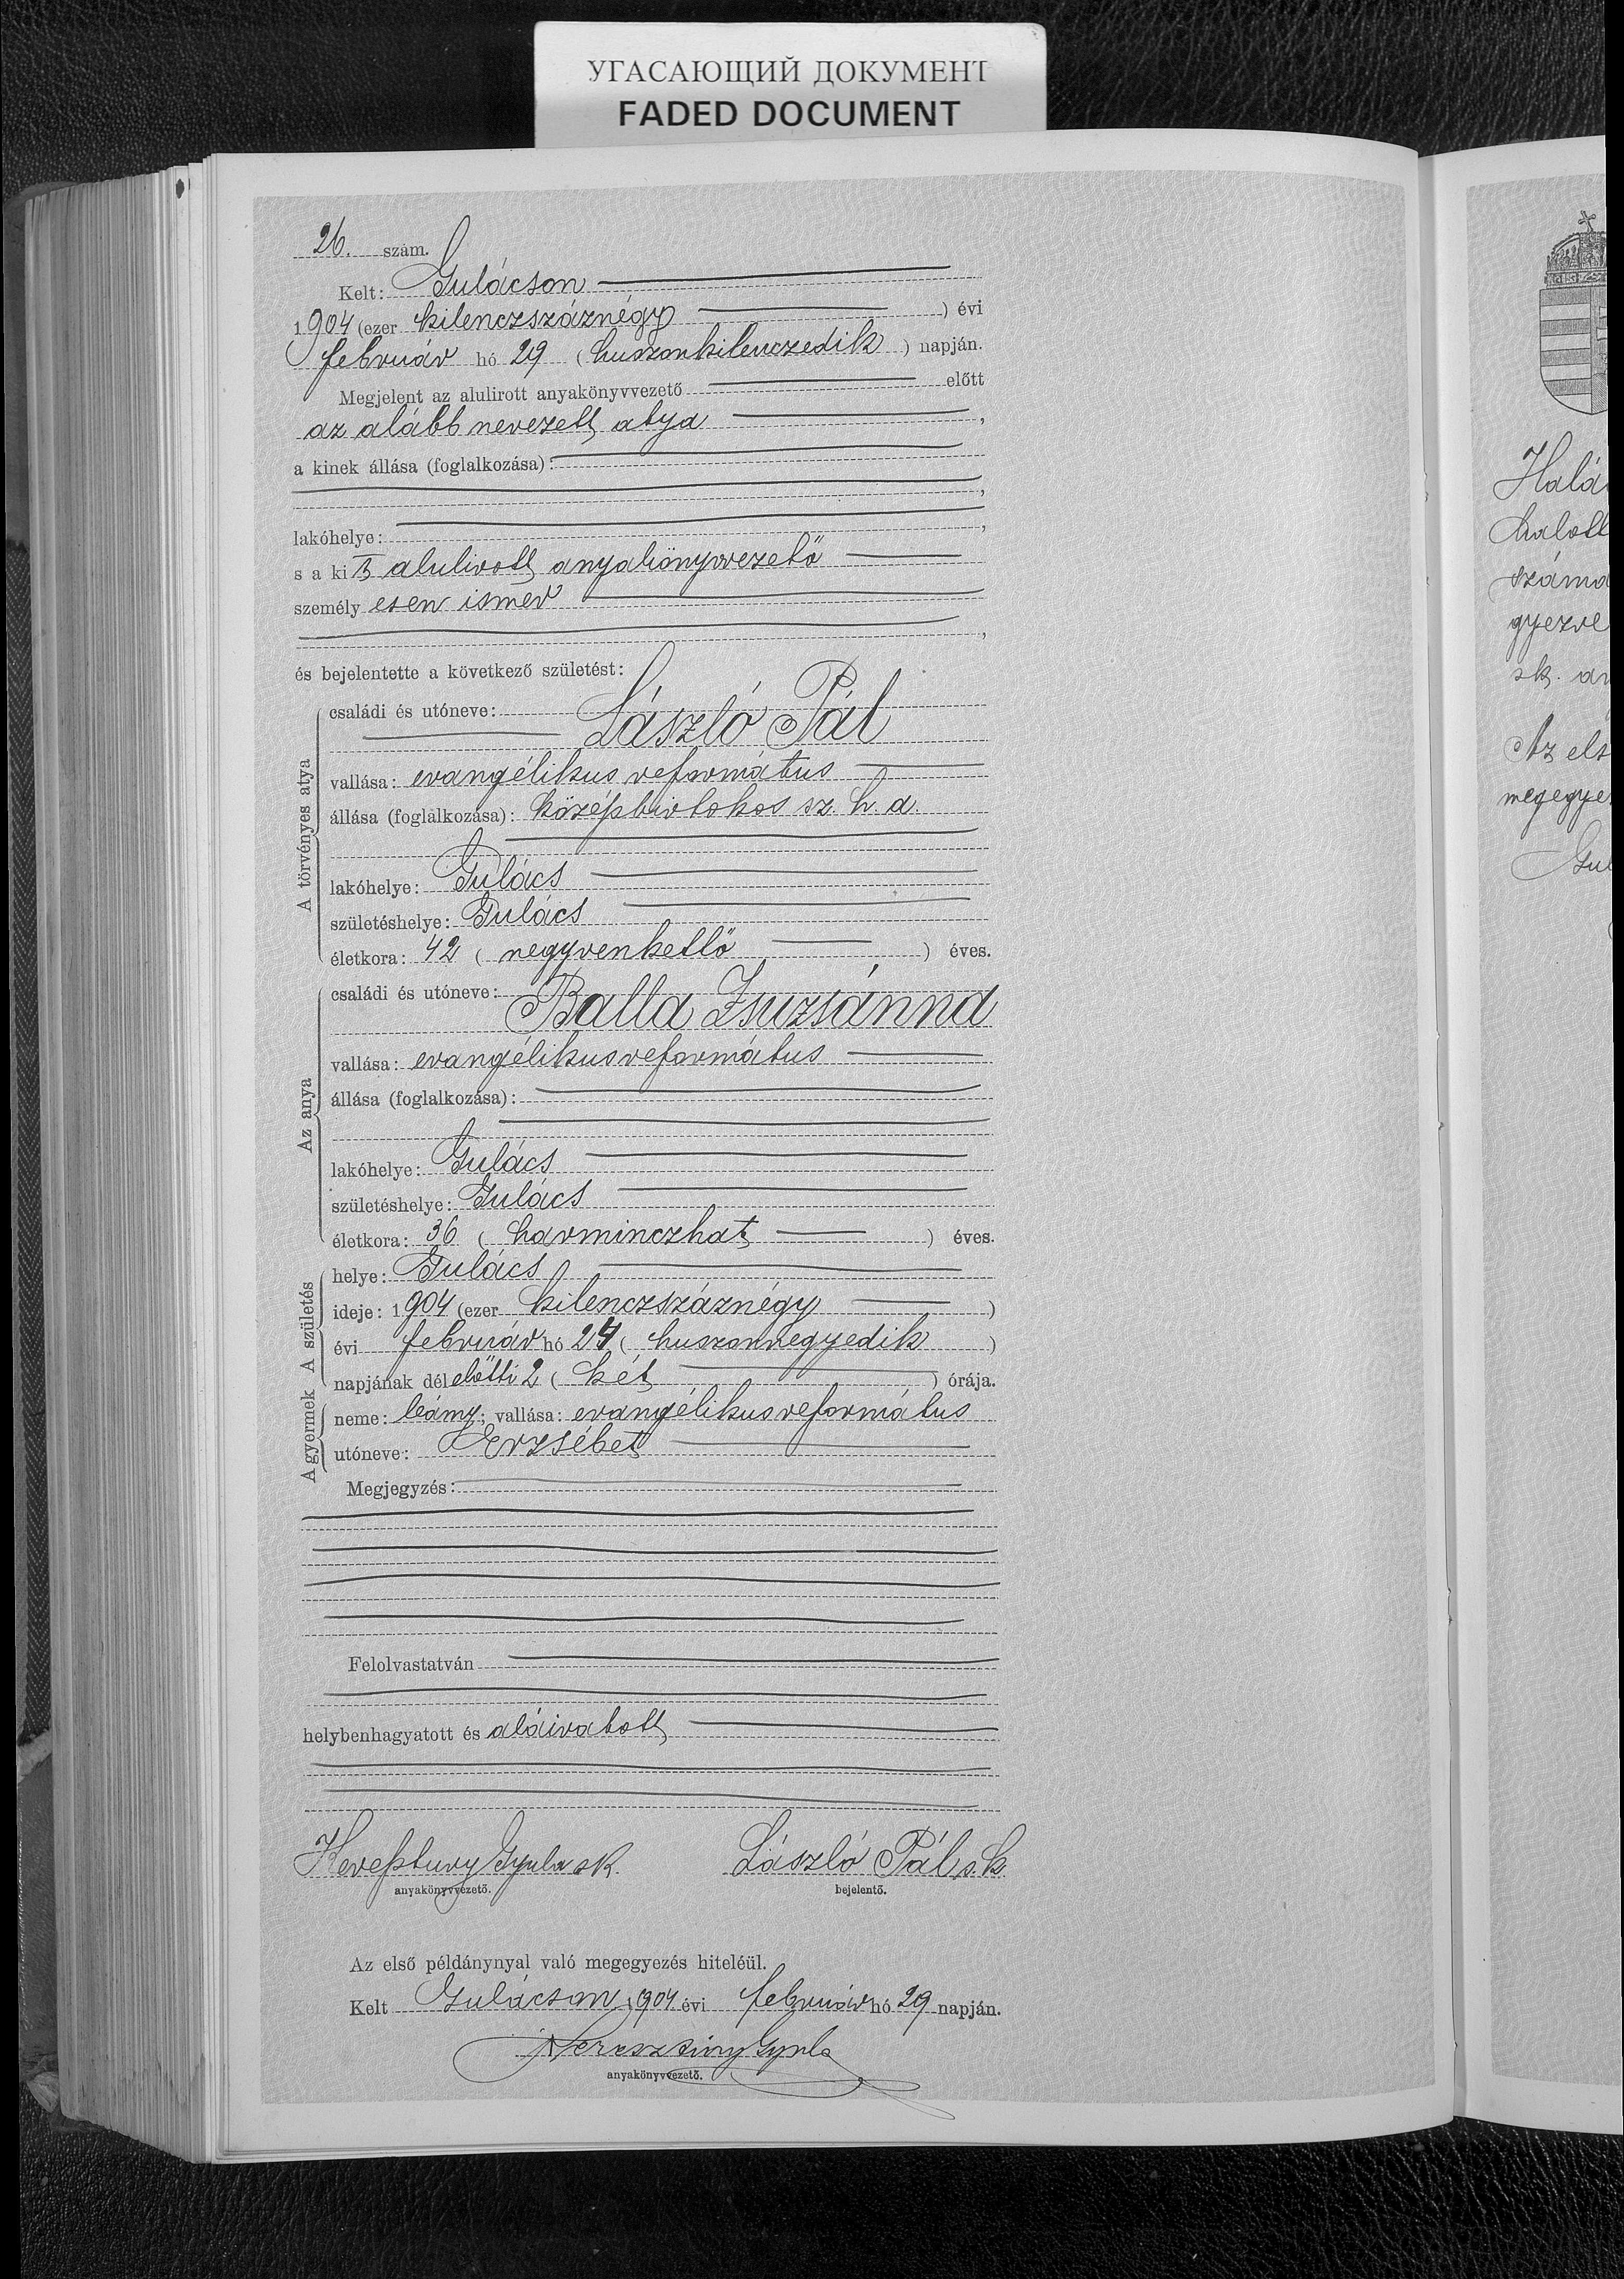 УГАСАЮЩИЙ ДОКУМЕНТ
FADED DOCUMENT
26. szám.
Kelt: Gulácson
1904 (ezer kilenczszáznégy ) évi
február hó 29 (huszonkilenczedik) napján.
Megjelent az alulirott anyakönyvvezető előtt
az alább nevezett atya ,
a kinek állása (foglalkozása):
,
lakóhelye: ,
s a kit alulirott anyakönyvvezető
személyesen ismer
,
és bejelentette a következő születést:
A törvényes atya
családi és utóneve:
László Pál
vallása: evangélikus református
állása (foglalkozása): középbirtokos sz. h. a.
lakóhelye: Gulács
születéshelye: Gulács
életkora: 42 ( negyvenkettő ) éves.
Az anya
családi és utóneve:
Balla Zsuzsánna
vallása: evangélikus református
állása (foglalkozása):
lakóhelye: Gulács
születéshelye: Gulács
életkora: 36 ( harminczhat ) éves.
A születés
helye: Gulács
ideje: 1904 (ezer kilenczszáznégy )
évi február hó 24 ( huszonnegyedik )
napjának délelőtti 2 ( két ) órája.
A gyermek
neme: leány; vallása: evangélikus református
utóneve: Erzsébet
Megjegyzés:
Felolvastatván
helybenhagyatott és aláiratott
Kereßtury Gyula sk. László Pál s.k.
anyakönyvvezető. bejelentő.
Az első példánynyal való megegyezés hiteléül.
Kelt Gulácson, 1904 évi február hó 29 napján.
Keresztury Gyula
anyakönyvvezető.
Halá
halott
száma
gyezve
sk. an
Az els
megegye
Gul